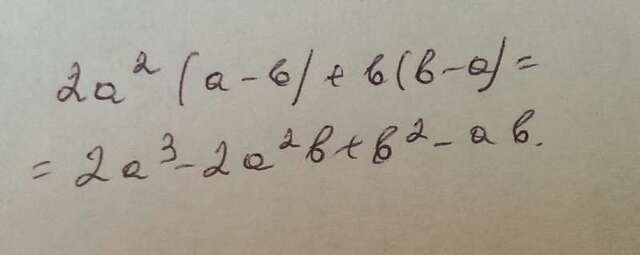 2a² (a - b) + b(b - a) =
= 2a³ - 2a²b + b² - ab.